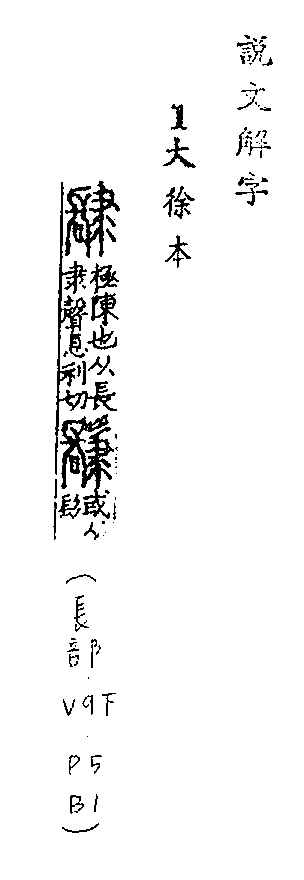 説文解字
1大徐本
𨽸極陳也从長隶聲息利切𩭳或从髟
(長部.V9下.P5B1)